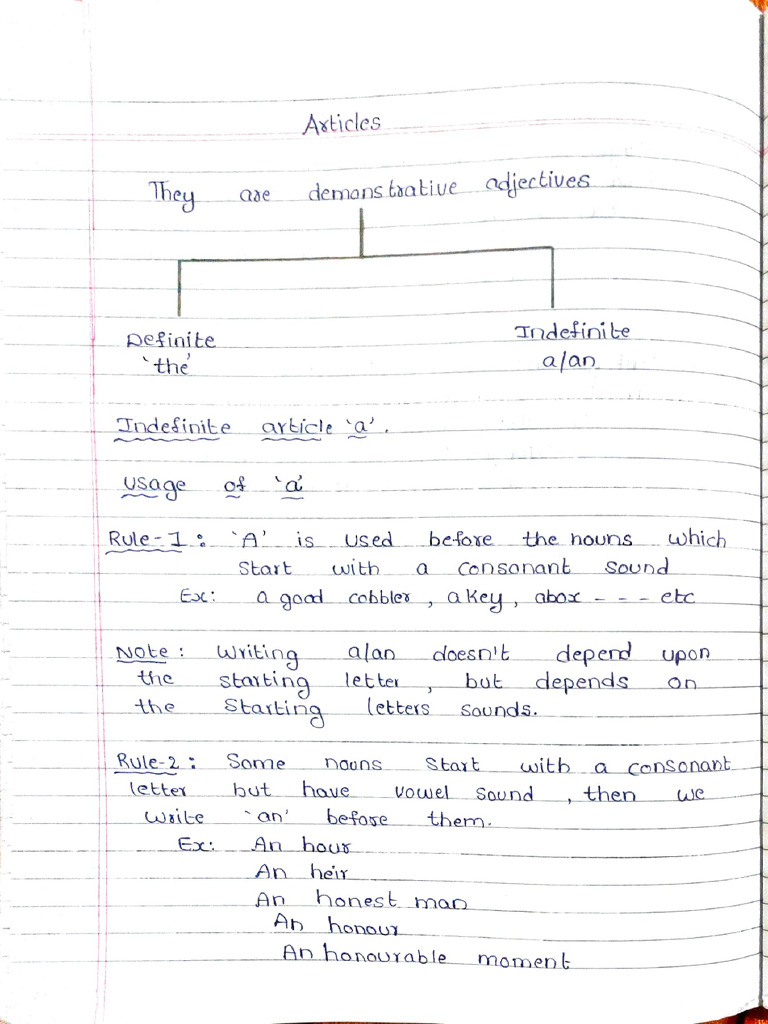 Articles
They are demonstrative adjectives
Definite Indefinite
'the' a/an
Indefinite article 'a'.
Usage of 'a'
Rule-1: 'A' is used before the nouns which
start with a consonant sound
Ex: a good cobbler, a key, a box - - - etc
Note: Writing a/an doesn't depend upon
the starting letter, but depends on
the starting letters sounds.
Rule-2: Some nouns start with a consonant
letter but have vowel sound, then we
write 'an' before them.
Ex: An hour
An heir
An honest man
An honour
An honourable moment